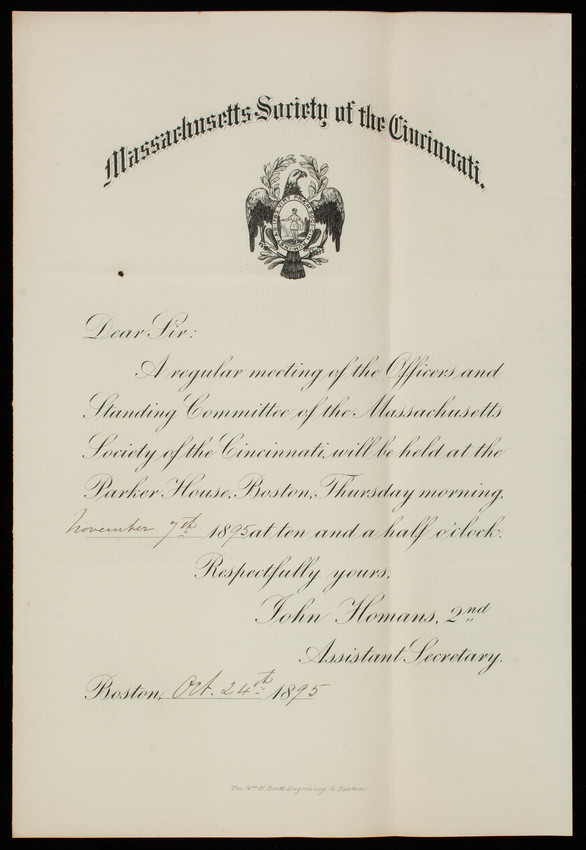 Massachusetts Society of the Cincinnati.
Dear Sir:
A regular meeting of the Officers and
Standing Committee of the Massachusetts
Society of the Cincinnati, will be held at the
Parker House, Boston, Thursday morning,
November 7th 1895 at ten and a half o'clock.
Respectfully yours,
John Homans, 2nd
Assistant Secretary.
Boston, Oct. 24th 1895